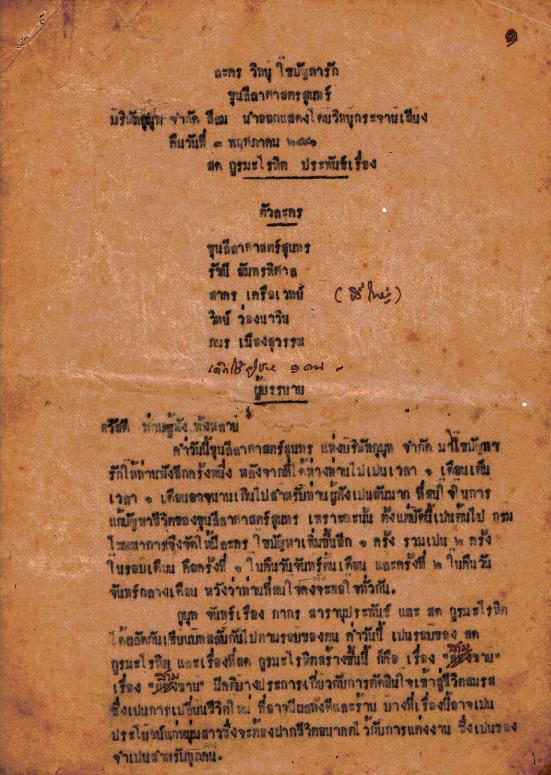 ๑
ละคร วิทยุ ไขปัญหารัก
ขุนลีลาศาสตรสุนทร์
บริษัทกูมุท จำกัด สีลม นำออกแสดงโดยวิทยุกระจายเสียง
คืนวันที่ ๓ พฤศภาคม ๒๔๙๑
สด กูรมะโรหิต ประพันธ์เรื่อง
ตัวละคร
ขุนลีลาศาสตร์สุนทร
รัชนี จันทรพิศาล
สาคร เครือเวทย์
วิทย์ ว่องนาวิน
ภมร เมืองสุวรรณ
ผู้บรรยาย
สวัสดี ท่านผู้ฟังทั้งหลาย
ค่ำวันนี้ขุนลีลาศาสตร์สุนทร แห่งบริษัทกูมุท จำกัด มาไขปัญหา
รักให้ท่านฟังอีกครั้งหนึ่ง หลังจากที่ได้ห่างท่านไปเป็นเวลา ๑ เดือนเต็ม
เวลา ๑ เดือนอาจนานเกินไปสำหรับท่านผู้ฟังเป็นอันมาก ที่สนใจในการ
แก้ปัญหาชีวิตของขุนลีลาศาสตร์สุนทร เพราะฉะนั้น ตั้งแต่บัดนี้เป็นต้นไป กรม
โฆษณาการจึงจัดให้มีละคร ไขปัญหาเพิ่มขึ้นอีก ๑ ครั้ง รวมเป็น ๒ ครั้ง
ในรอบเดือน คือครั้งที่ ๑ ในคืนวันจันทร์ต้นเดือน และครั้งที่ ๒ ในคืนวัน
จันทร์กลางเดือน หวังว่าท่านที่สนใจคงจะพอใจทั่วกัน.
กุมุท จันทร์เรือง ภากร สารานุประพันธ์ และ สด กูรมะโรหิต
ได้ผลัดกันเขียนบทสลับกันไปตามรอบของตน ค่ำวันนี้ เป็นรอบของ สด
กูรมะโรหิต และเรื่องที่สด กูรมะโรหิตสร้างขึ้นนี้ ก็คือ เรื่อง "สามชาย"
เรื่อง "สามชาย" มีคติบางประการเกี่ยวกับการตัดสินใจเข้าสู่ชีวิตสมรส
ซึ่งเป็นการเปลี่ยนชีวิตใหม่ ที่อาจมีผลทั้งดีและร้าย บางทีเรื่องนี้อาจเป็น
ประโยชน์แก่หนุ่มสาวซึ่งจะต้องฝากชีวิตอนาคตไว้กับการแต่งงาน ซึ่งเป็นของ
จำเป็นสำหรับทุกคน.